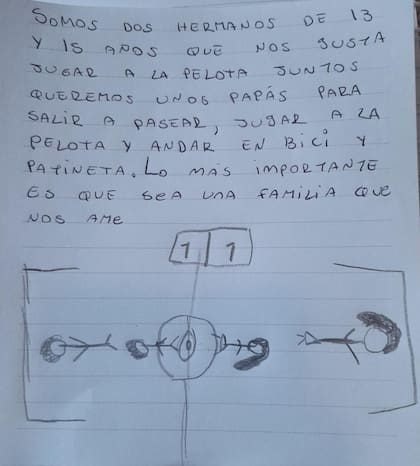 SOMOS DOS HERMANOS DE 13
Y 15 AÑOS QUE NOS JUSTA
JUGAR A LA PELOTA JUNTOS
QUEREMOS UNOS PAPÁS PARA
SALIR A PASEAR, JUGAR A LA
PELOTA Y ANDAR EN BICI Y
PATINETA. LO MÁS IMPORTANTE
ES QUE SEA UNA FAMILIA QUE
NOS AME
1 1